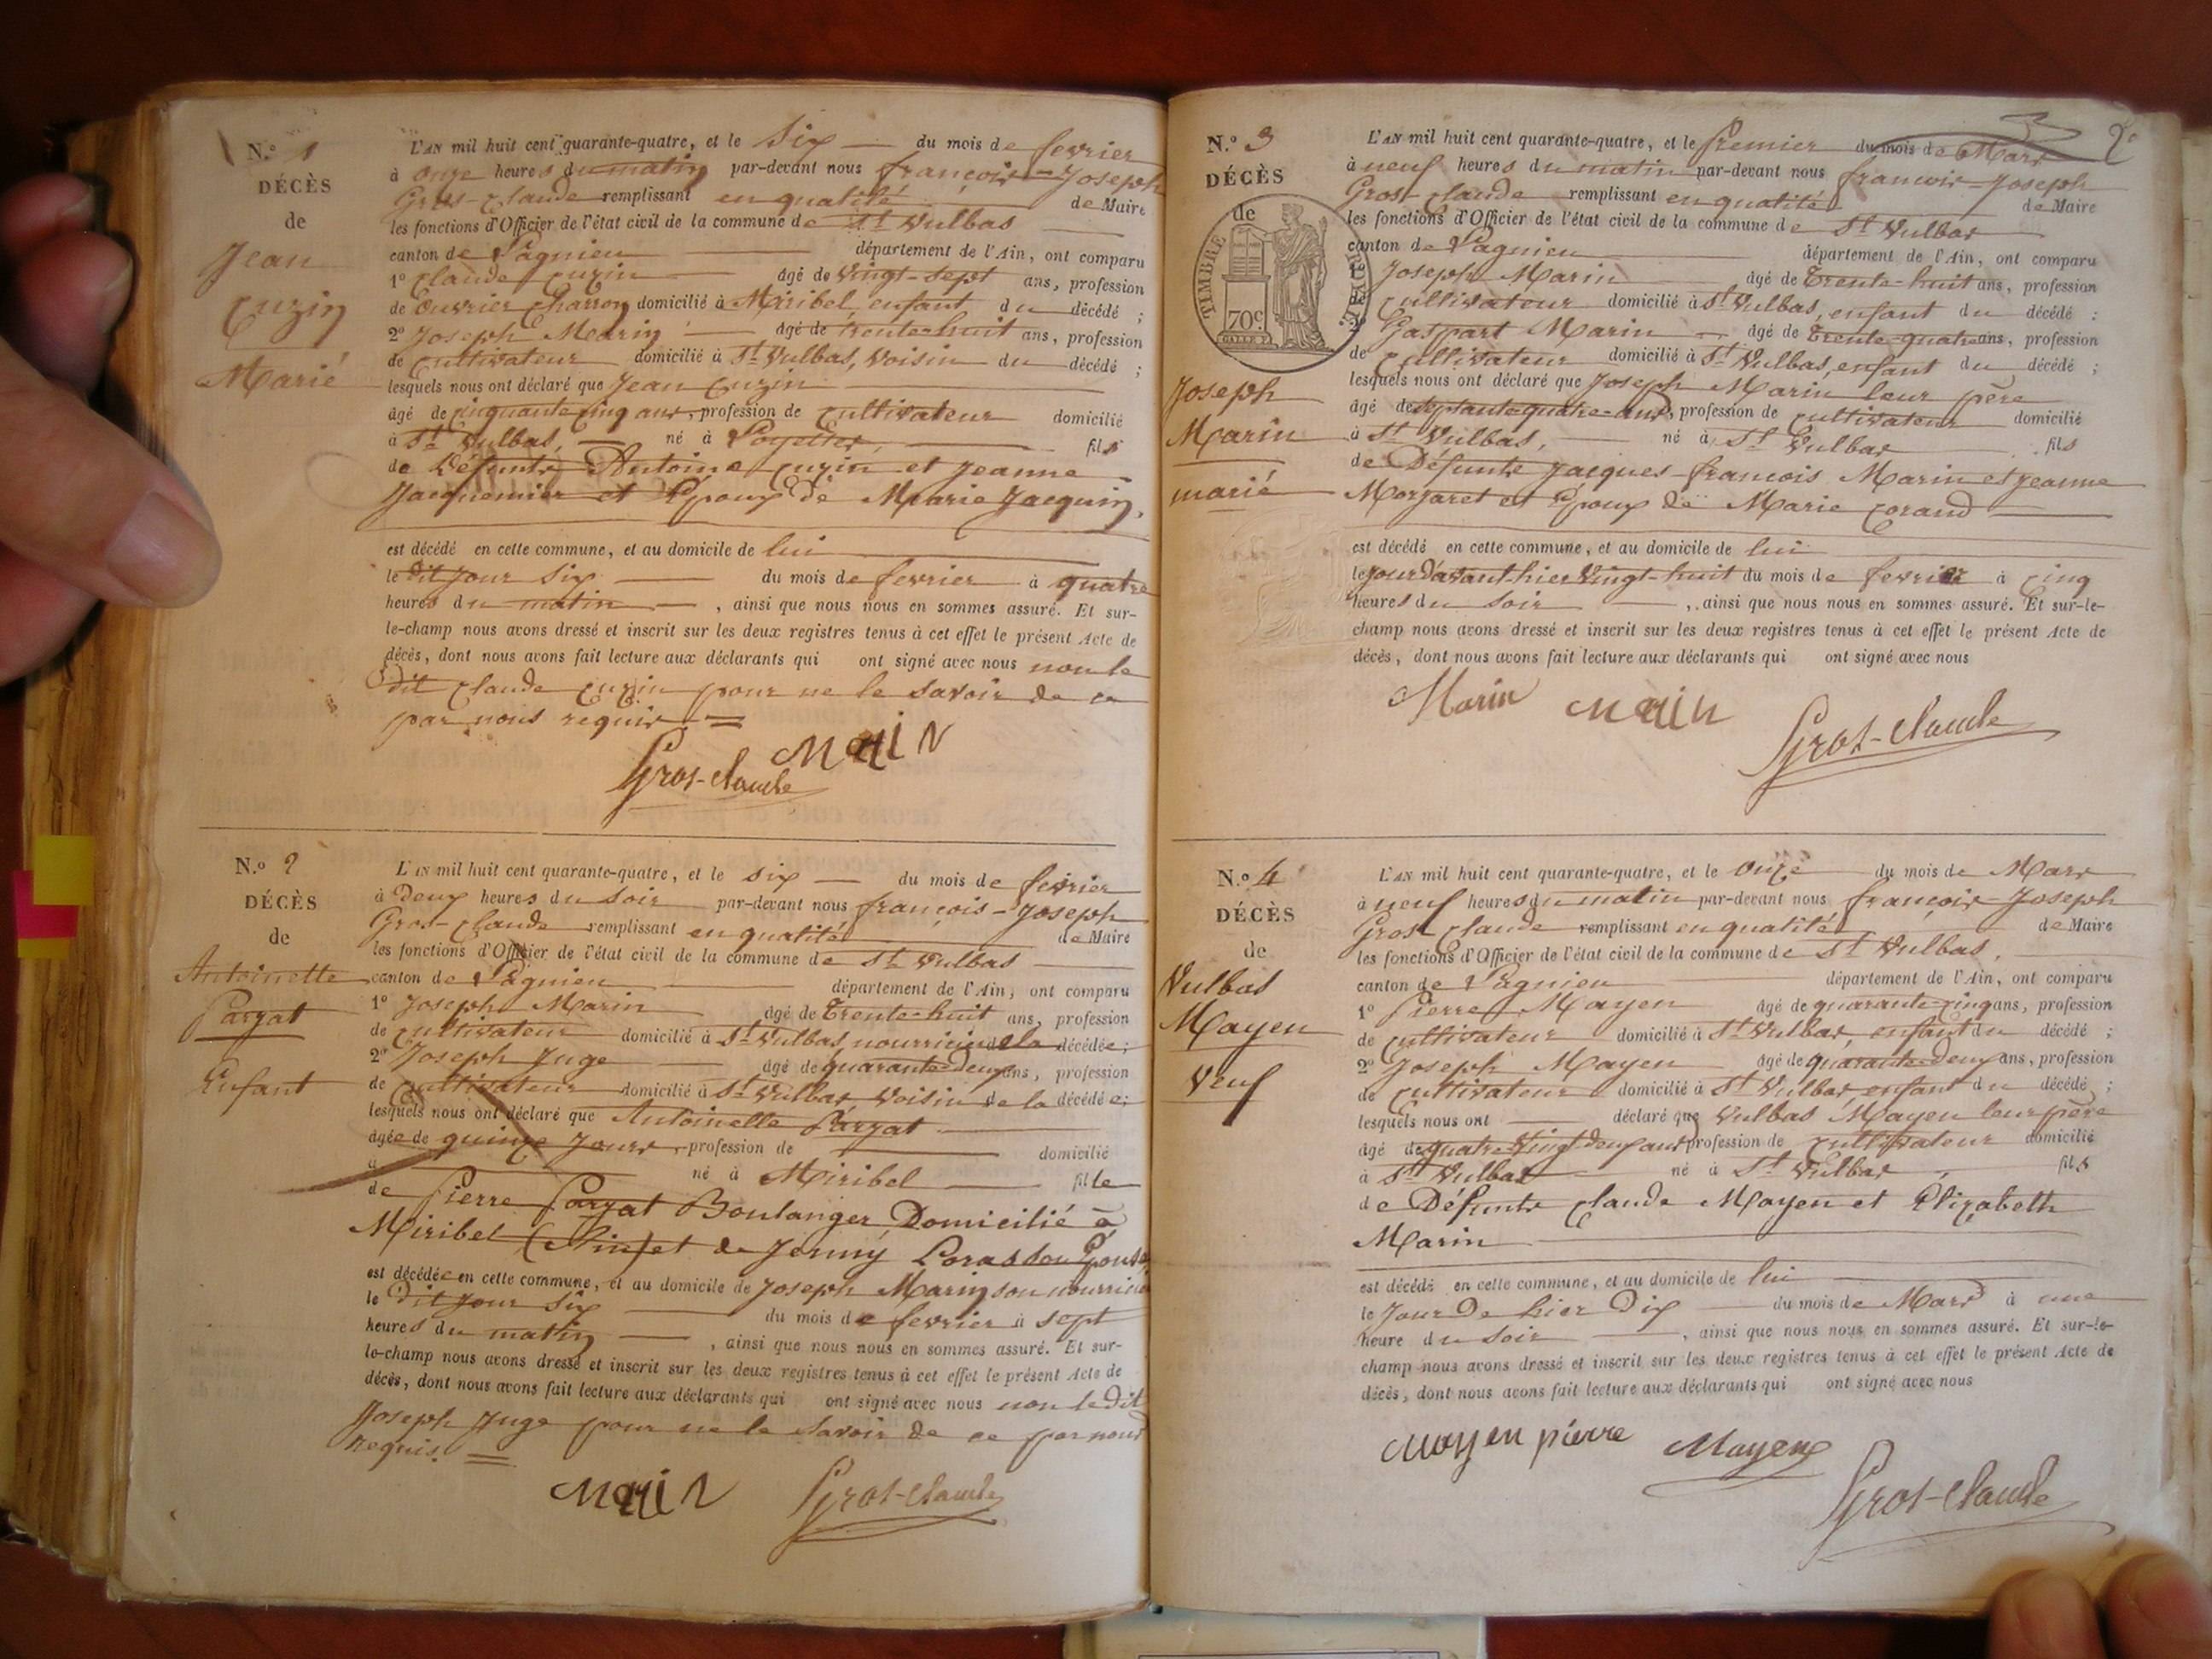 N.o 1
DÉCÈS
de
Jean
Cuzin
Marié
L'AN mil huit cent quarante-quatre, et le Six du mois de fevrier
à onze heures du matin par-devant nous françois-Joseph
Gros-Claude remplissant en qualité de Maire
les fonctions d'Officier de l'état civil de la commune de St Vulbas
canton de Lagnieu département de l'Ain, ont comparu
1o Claude Cuzin âgé de Vingt-Sept ans, profession
de Ouvrier Charron domicilié à Miribel, enfant du décédé ;
2o Joseph Marin âgé de trente-huit ans, profession
de Cultivateur domicilié à St Vulbas, Voisin du décédé ;
lesquels nous ont déclaré que Jean Cuzin
âgé de Cinquante cinq ans, profession de Cultivateur domicilié
à St Vulbas, né à Loyettes, fils
de Défunts Antoine Cuzin et Jeanne
Jacquemier et Epoux de Marie Jacquin.
est décédé en cette commune, et au domicile de lui
le dit Jour Six du mois de fevrier à quatre
heures du matin , ainsi que nous nous en sommes assuré. Et sur-
le-champ nous avons dressé et inscrit sur les deux registres tenus à cet effet le présent Acte de
décès, dont nous avons fait lecture aux déclarants qui ont signé avec nous non le
dit Claude Cuzin pour ne le Savoir de ce
par nous requis. =
Marin
Gros-Claude
N.o 2
DÉCÈS
de
Antoinette
Parzat
Enfant
L'AN mil huit cent quarante-quatre, et le Six du mois de fevrier
à Deux heures du Soir par-devant nous françois-Joseph
Gros-Claude remplissant en qualité de Maire
les fonctions d'Officier de l'état civil de la commune de St Vulbas
canton de Lagnieu département de l'Ain, ont comparu
1o Joseph Marin âgé de Trente-huit ans, profession
de Cultivateur domicilié à St Vulbas, nourricier de la décédée ;
2o Joseph Juge âgé de quarante-Deux ans, profession
de Cultivateur domicilié à St Vulbas, Voisin de la décédée ;
lesquels nous ont déclaré que Antoinette Parzat
âgée de quinze Jours, profession de domicilié
à né à Miribel fille
de Pierre Parzat Boulanger Domicilié à
Miribel (Ain) et de Jenny
est décédée en cette commune, et au domicile de Joseph Marin son nourricier
le dit Jour Six du mois de fevrier à Sept
heures du matin , ainsi que nous nous en sommes assuré. Et sur-
le-champ nous avons dressé et inscrit sur les deux registres tenus à cet effet le présent Acte de
décès, dont nous avons fait lecture aux déclarants qui ont signé avec nous non le dit
Joseph Juge pour ne le Savoir de ce par nous
Requis. =
Marin Gros-Claude
2e
N.o 3
DÉCÈS
de
TIMBRE ROYAL
70c
Joseph
Marin
marié
L'AN mil huit cent quarante-quatre, et le Premier du mois de Mars
à neuf heures du matin par-devant nous francois-Joseph
Gros-Claude remplissant en qualité de Maire
les fonctions d'Officier de l'état civil de la commune de St Vulbas
canton de Lagnieu département de l'Ain, ont comparu
Joseph Marin âgé de Trente-huit ans, profession
Cultivateur domicilié à St Vulbas, enfant du décédé ;
Gaspart Marin âgé de Trente-quatre ans, profession
de Cultivateur domicilié à St Vulbas, enfant du décédé ;
lesquels nous ont déclaré que Joseph Marin leur père
âgé de Septante quatre ans, profession de Cultivateur domicilié
à St Vulbas, né à St Vulbas fils
de Défunts Jacques-francois Marin et Jeanne
Morgaret et Epoux de Marie Corand
est décédé en cette commune, et au domicile de lui
le Jour d'avant-hier Vingt-huit du mois de fevrier à Cinq
heures du Soir , ainsi que nous nous en sommes assuré. Et sur-le-
champ nous avons dressé et inscrit sur les deux registres tenus à cet effet le présent Acte de
décès, dont nous avons fait lecture aux déclarants qui ont signé avec nous
Marin Marin
Gros-Claude
N.o 4
DÉCÈS
de
Vulbas
Mayen
Veuf
L'AN mil huit cent quarante-quatre, et le Onze du mois de Mars
à neuf heures du matin par-devant nous françois-Joseph
Gros-Claude remplissant en qualité de Maire
les fonctions d'Officier de l'état civil de la commune de St Vulbas,
canton de Lagnieu département de l'Ain, ont comparu
1o Pierre Mayen âgé de quarante-Cinq ans, profession
de Cultivateur domicilié à St Vulbas, enfant du décédé ;
2o Joseph Mayen âgé de quarante-Deux ans, profession
de Cultivateur domicilié à St Vulbas enfant du décédé ;
lesquels nous ont déclaré que Vulbas Mayen leur père
âgé de quatre-Vingt-deux ans profession de Cultivateur domicilié
à St Vulbas né à St Vulbas, fils
de Défunts Claude Mayen et Elizabeth
Marin
est décédé en cette commune, et au domicile de lui
le Jour De hier Dix du mois de Mars à une
heure du Soir , ainsi que nous nous en sommes assuré. Et sur-le-
champ nous avons dressé et inscrit sur les deux registres tenus à cet effet le présent Acte de
décès, dont nous avons fait lecture aux déclarants qui ont signé avec nous
Moyen pierre Mayen
Gros-Claude